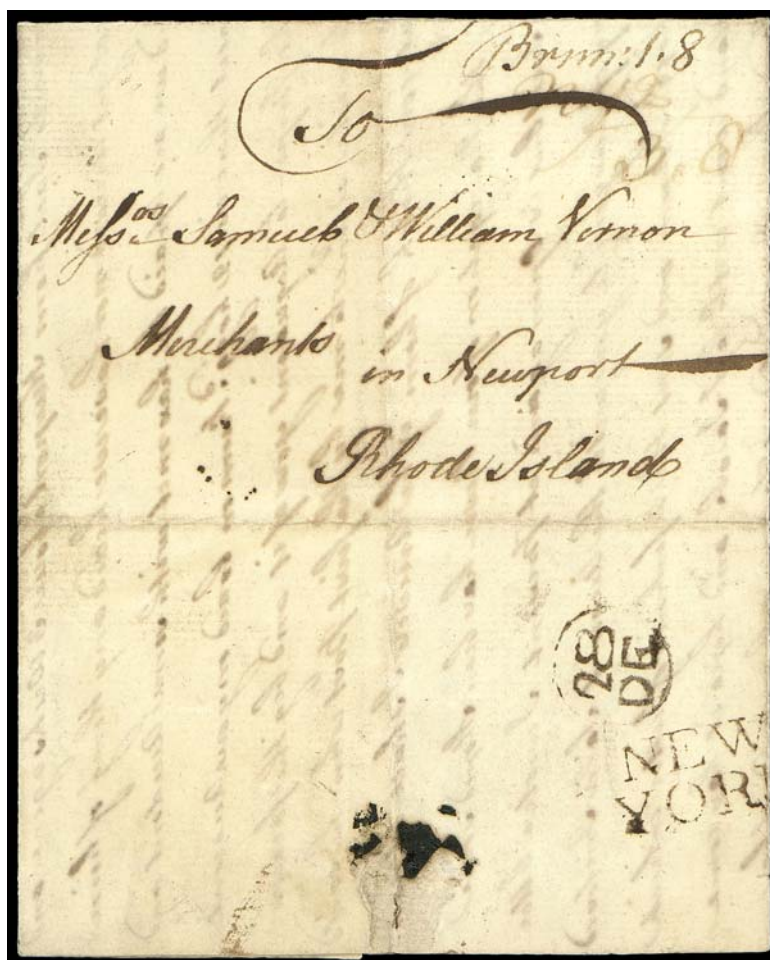 Brun: 1.8
2.8
To
Messrs Samuel & William Vernon
Merchants
in Newport
Rhode Island
28
DE
NEW
YORK